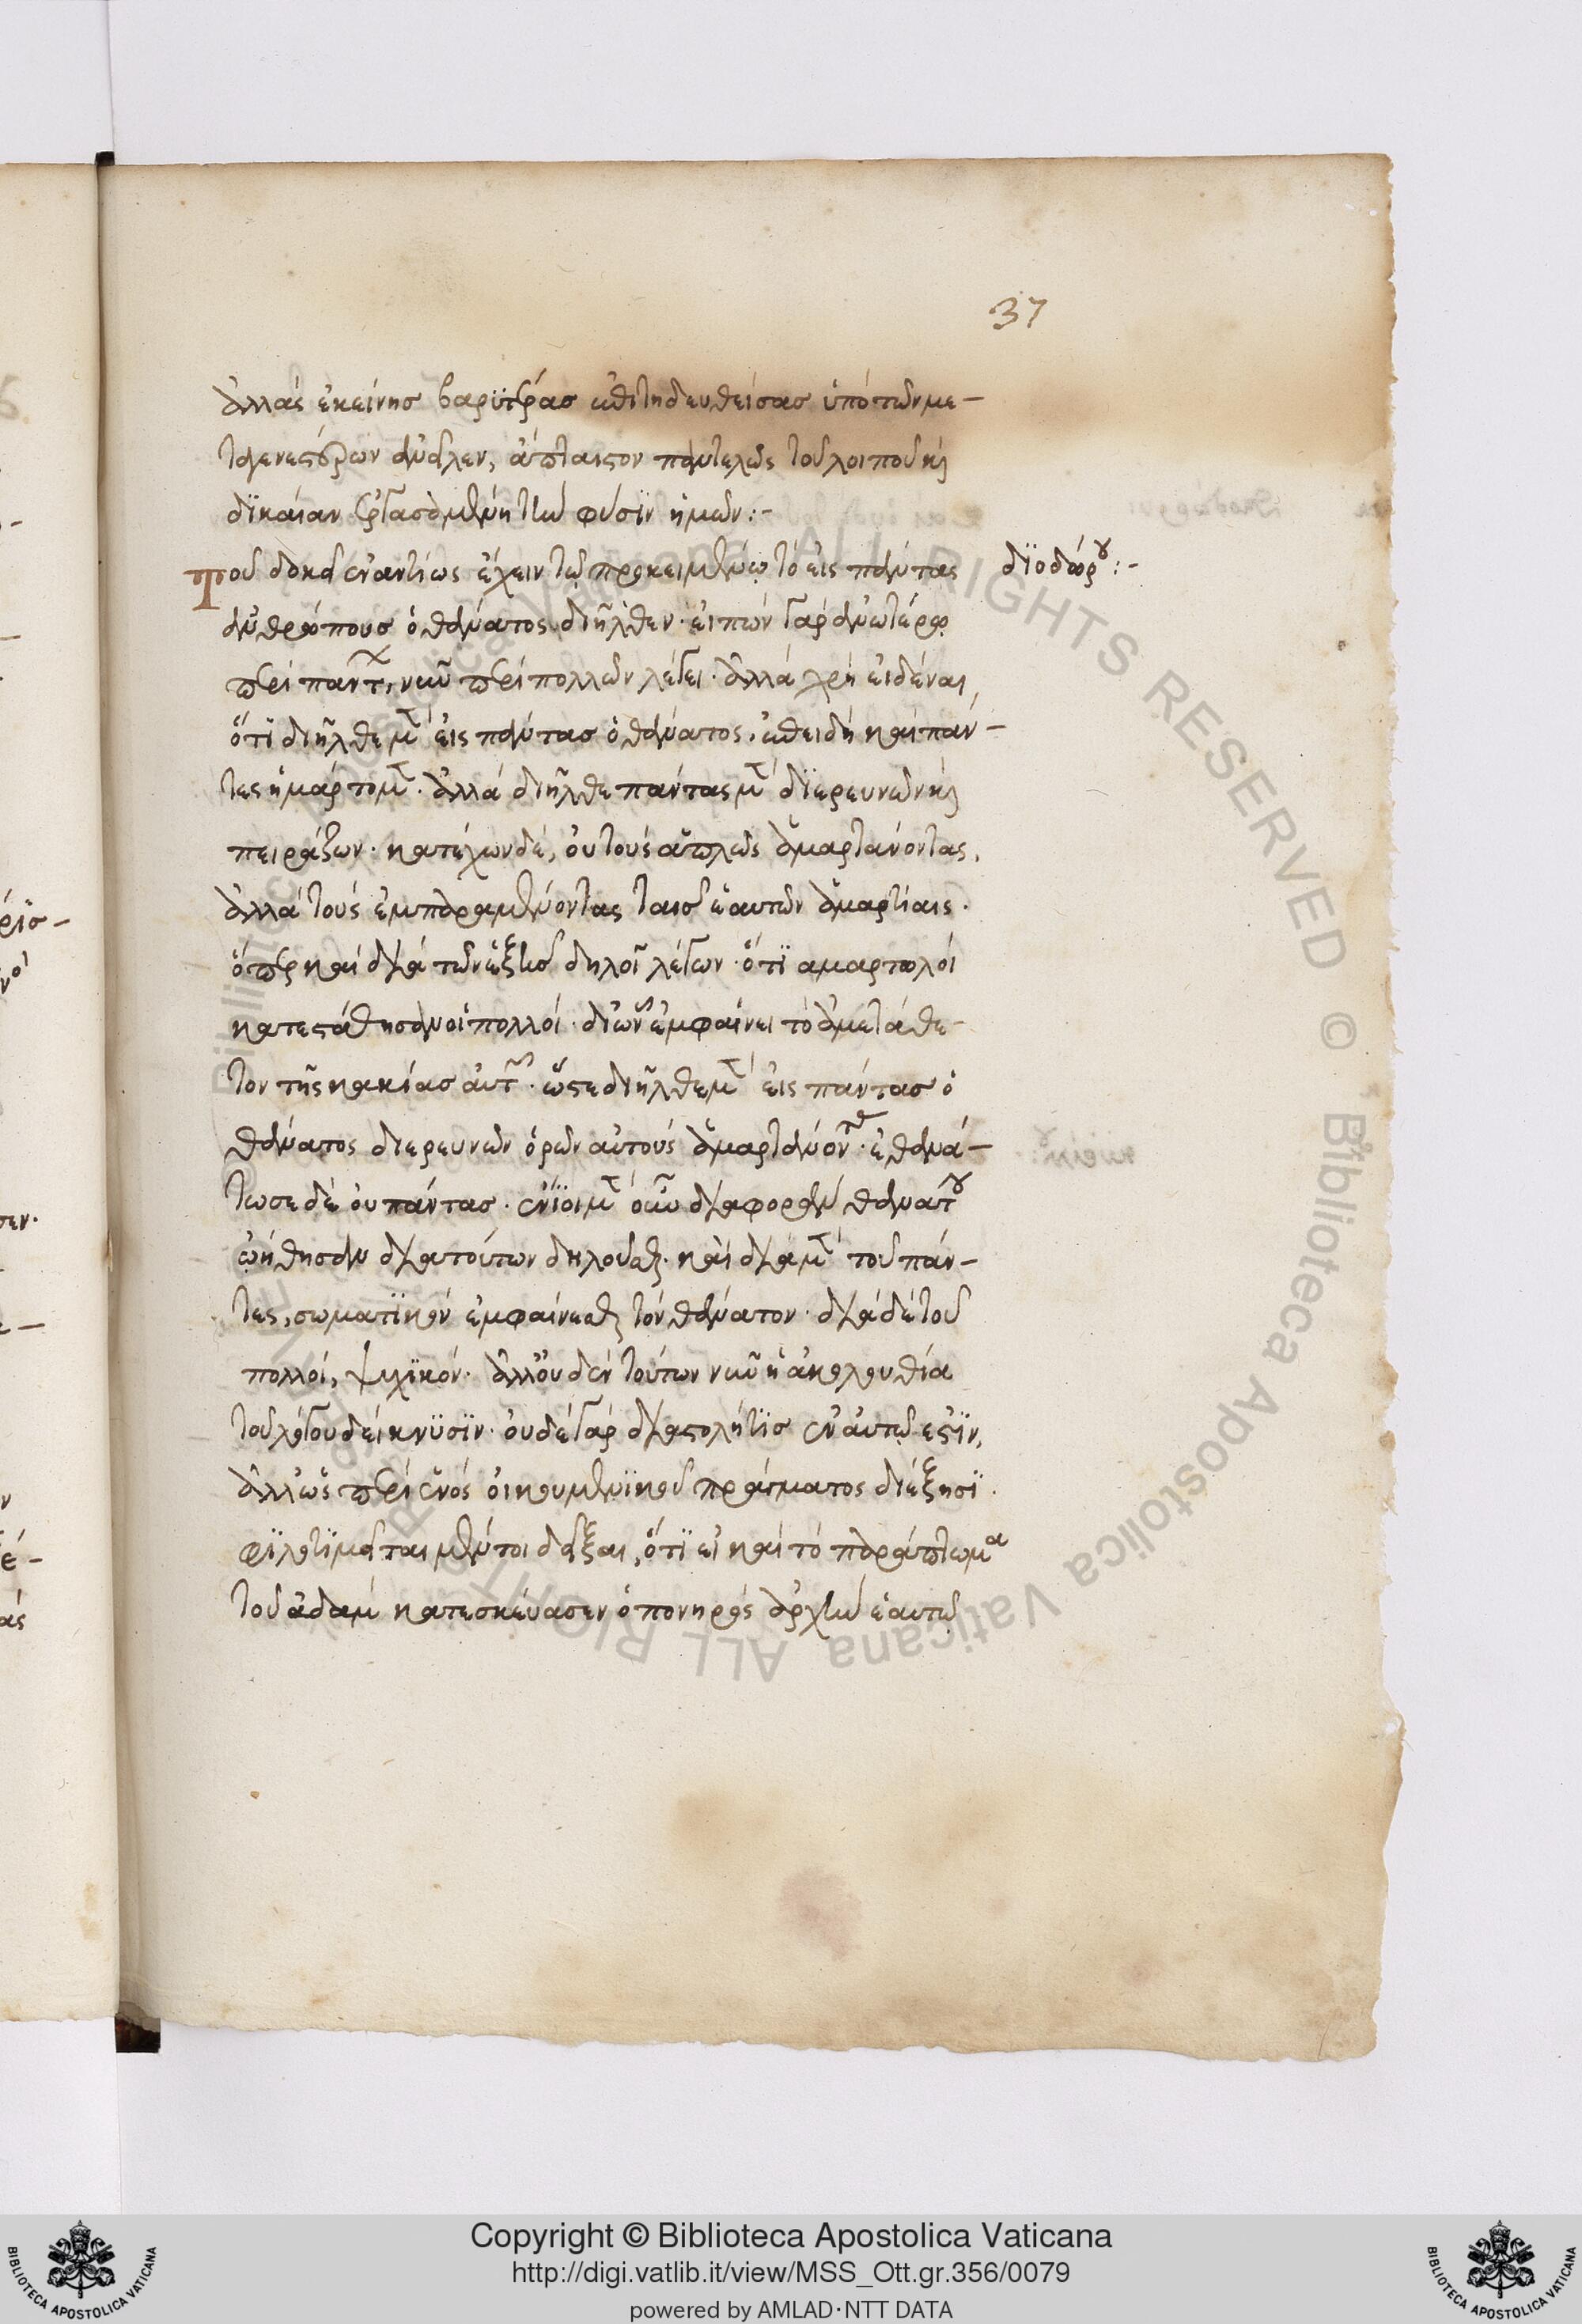 37
ἀλλὰς ἐκείνησ βαρϋτέρασ ἐπιτηδευθείσασ ὑπὸ τῶν με-
ταγενεστέρων ἀνεῖλεν, ἄπταιστον παντελῶς τοῦ λοιποῦ καὶ
δϊκαίαν ἐργασάμενη τὴν φύσϊν ἡμῶν:-
Τοῦ δοκεῖ ἐναντίως ἔχειν τῷ προκειμένῳ τὸ εἰς πάντας
δϊοδώρου:-
ἀνθρώπουσ ὁ θάνατος διῆλθεν· εἰπὼν γὰρ ἀνωτέρῳ
περὶ παντων, νῦν περὶ πολλῶν λέγει· ἀλλὰ χρὴ εἰδέναι,
ὅτϊ διῆλθε μὲν εἰς πάντασ ὁ θάνατος, ἐπειδὴ καὶ πάν-
τες ἥμαρτομεν· ἀλλὰ διῆλθε πάντας μὲν διερευνῶν καὶ
πειράζων· κατέχων δὲ, οὐ τοὺς ἁπλῶς ἁμαρτάνοντας,
ἀλλὰ τοὺς ἐμπαραμένοντας ταισ ἑαυτῶν ἁμαρτίαις·
ὅπερ καὶ διὰ τῶν ἑξῆσ δηλοῖ λέγων· ὅτϊ αμαρτωλοὶ
κατεστάθησαν οἱ πολλοί· δι' ὧν ἐμφαίνει τὸ ἀμετάθε-
τον τῆς κακίασ αὐτῶν· ὥστε διῆλθε μὲν εἰς πάντασ ὁ
θάνατος διερευνῶν ὁρῶν αὐτοὺς ἁμαρτάνοντας· ἐθανά-
τωσε δὲ οὐ πάντας· ἔνϊοι μὲν οὖν διαφορὰν θανάτου
ᾠήθησαν διὰ τούτων δηλοῦσθαι· καὶ διὰ μὲν τοῦ πάν-
τες, σωματϊκὸν ἐμφαίνεσθαι τὸν θάνατον· διὰ δὲ τοῦ
πολλοί, ψυχϊκόν· ἀλλ' οὐδὲν τούτων νῦν ἡ ἀκολουθία
τοῦ λόγου δείκνϋσϊν· οὐδὲ γὰρ διαστολή τϊσ ἐν αὐτῷ εστϊν,
ἀλλ' ὡς περὶ ἑνὸς οἰκουμενϊκοῦ πράγματος διέξησϊ·
φϊλοτϊμεῖται μέντοι δεῖξαι, ὅτϊ εἰ καὶ τὸ παράπτωμα
τοῦ ἀδαμ κατεσκεύασεν ὁ πονηρὸς ἀρχὴν ἑαυτῷ
Copyright © Biblioteca Apostolica Vaticana
http://digi.vatlib.it/view/MSS_Ott.gr.356/0079
powered by AMLAD·NTT DATA